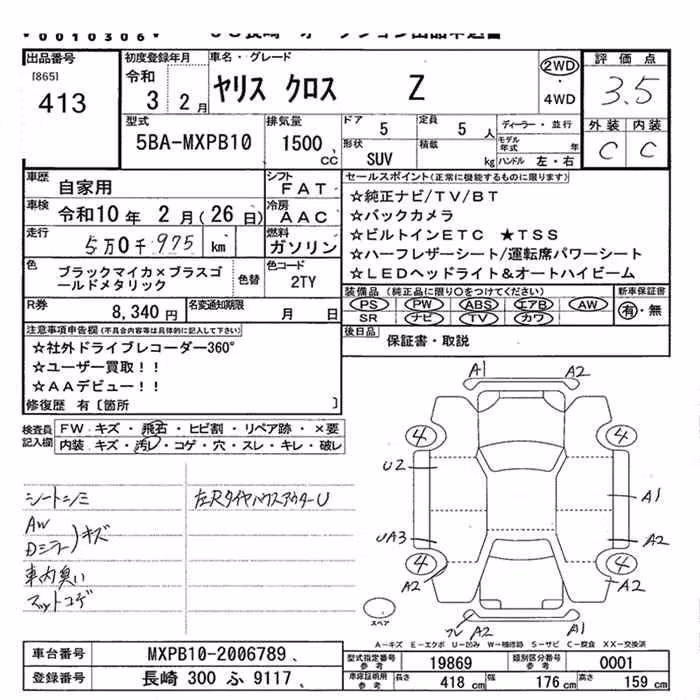 0010306
出品番号
[865]
413
初度登録年月
令和
3 2月
車名・グレード
ヤリス クロス Z
2WD
・
4WD
評価点
3.5
外装 内装
C C
型式
5BA-MXPB10
排気量
1500 CC
ドア 5
定員 5 人
形状 SUV
積載 kg
ディーラー・並行
モデル年式 年
ハンドル 左・右
車歴 自家用
シフト FAT
車検 令和10年 2月(26日)
冷房 AAC
走行 5万0千975 km
燃料 ガソリン
色 ブラックマイカ×ブラスゴールドメタリック
色替
色コード 2TY
R券 8,340円
名変通知期限 月 日
セールスポイント(正常に機能するものに限ります)
☆純正ナビ/TV/BT
☆バックカメラ
☆ビルトインETC ★TSS
☆ハーフレザーシート/運転席パワーシート
☆LEDヘッドライト&オートハイビーム
装備品(純正品に限り○をつけてください)
PS PW ABS エアB AW
SR ナビ TV カワ
新車保証書
有・無
後日品 保証書・取説
注意事項申告欄(不具合内容等は具体的に記入して下さい)
☆社外ドライブレコーダー360°
☆ユーザー買取!!
☆AAデビュー!!
修復歴 有〔箇所 〕
検査員記入欄
FW キズ・飛石・ヒビ割・リペア跡・×要
内装 キズ・汚レ・コゲ・穴・スレ・キレ・破レ
シートシミ
AW
Dミラー)キズ
車内臭い
マットコゲ
左Rタイヤハウスアウター U
A1 A2
4 4
U2
A1
UA3
A2
4 4
A2 A2
フレ A2 A1
スペア
A-キズ E-エクボ U-凹み W-補修跡 S-サビ C-腐食 XX-交換済
車台番号 MXPB10-2006789
登録番号 長崎 300 ふ 9117
型式指定番号参考 19869
類別区分番号参考 0001
車庫証明用参考 長さ 418 cm 幅 176 cm 高さ 159 cm